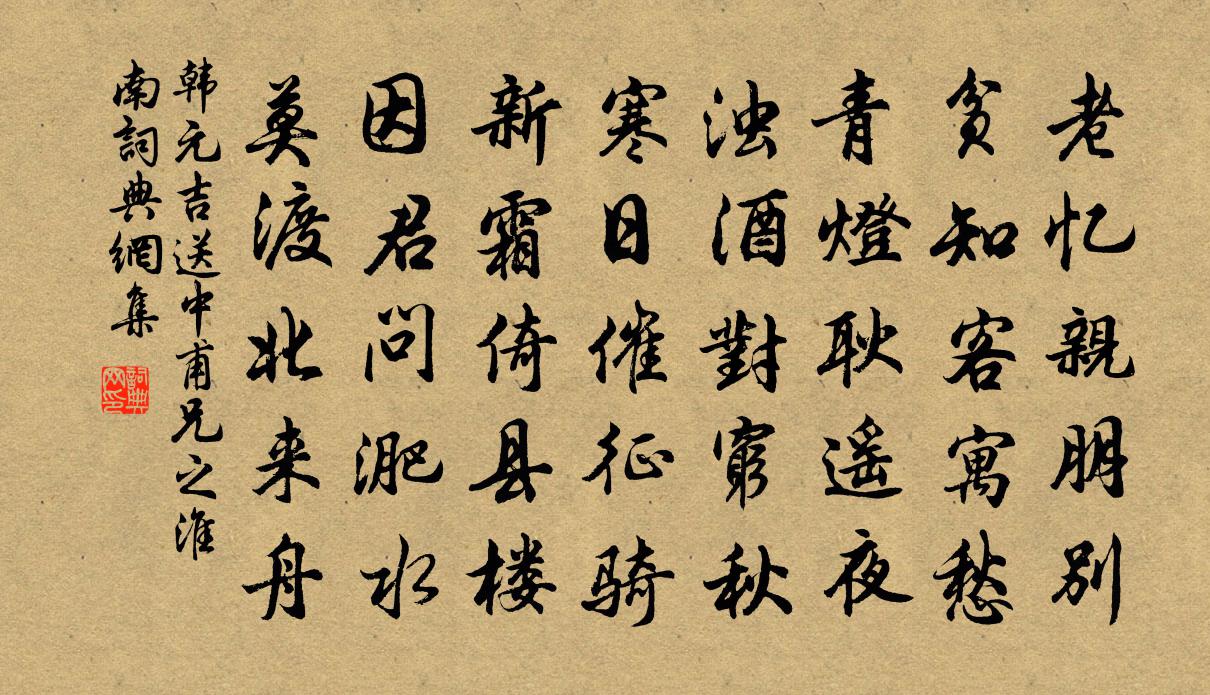 老忆親朋别
贫知客寓愁
青燈耿遥夜
浊酒對窮秋
寒日催征骑
新霜倚县楼
因君問淝水
莫渡北来舟
韩元吉送中甫兄之淮
南詞典網集
詞典
网印